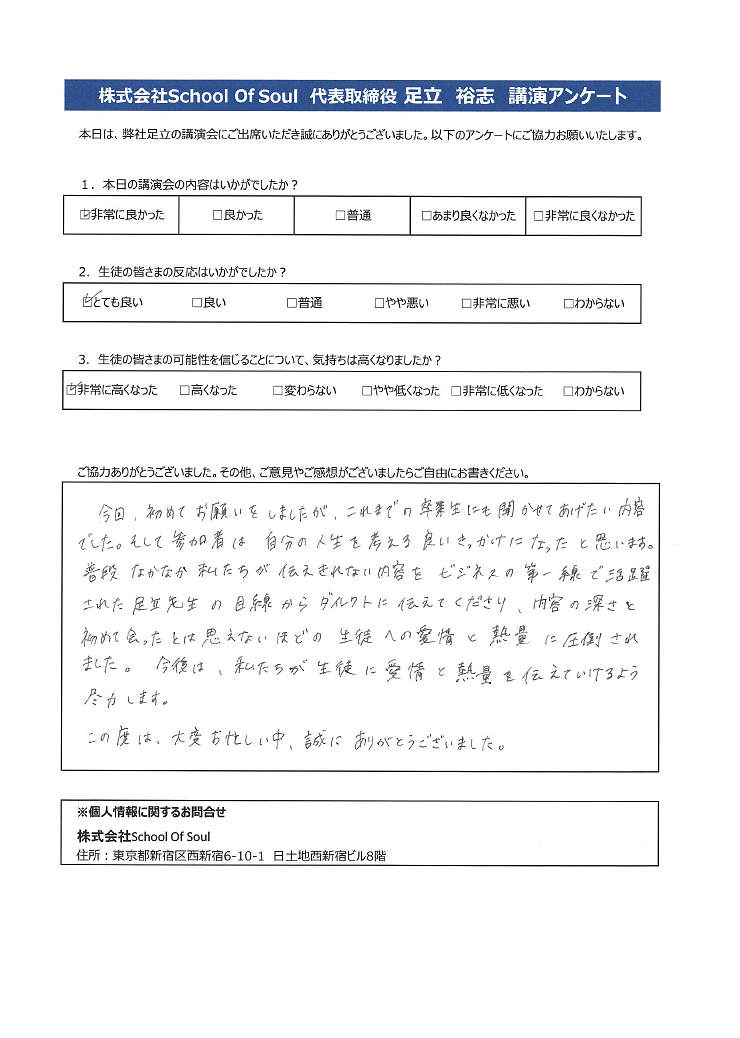 株式会社School Of Soul 代表取締役 足立 裕志 講演アンケート
本日は、弊社足立の講演会にご出席いただき誠にありがとうございました。以下のアンケートにご協力お願いいたします。
1．本日の講演会の内容はいかがでしたか？
☑非常に良かった □良かった □普通 □あまり良くなかった □非常に良くなかった
2．生徒の皆さまの反応はいかがでしたか？
☑とても良い □良い □普通 □やや悪い □非常に悪い □わからない
3．生徒の皆さまの可能性を信じることについて、気持ちは高くなりましたか？
☑非常に高くなった □高くなった □変わらない □やや低くなった □非常に低くなった □わからない
ご協力ありがとうございました。その他、ご意見やご感想がございましたらご自由にお書きください。
今回、初めてお願いをしましたが、これまでの卒業生にも聞かせてあげたい内容
でした。そして参加者は自分の人生を考える良いきっかけになったと思います。
普段なかなか私たちが伝えきれない内容をビジネスの第一線で活躍
された足立先生の目線からダイレクトに伝えてくださり、内容の深さと
初めて会ったとは思えないほどの生徒への愛情と熱量に圧倒され
ました。今後は、私たちが生徒に愛情と熱量を伝えていけるよう
尽力します。
この度は、大変お忙しい中、誠にありがとうございました。
※個人情報に関するお問合せ
株式会社School Of Soul
住所：東京都新宿区西新宿6-10-1 日土地西新宿ビル8階